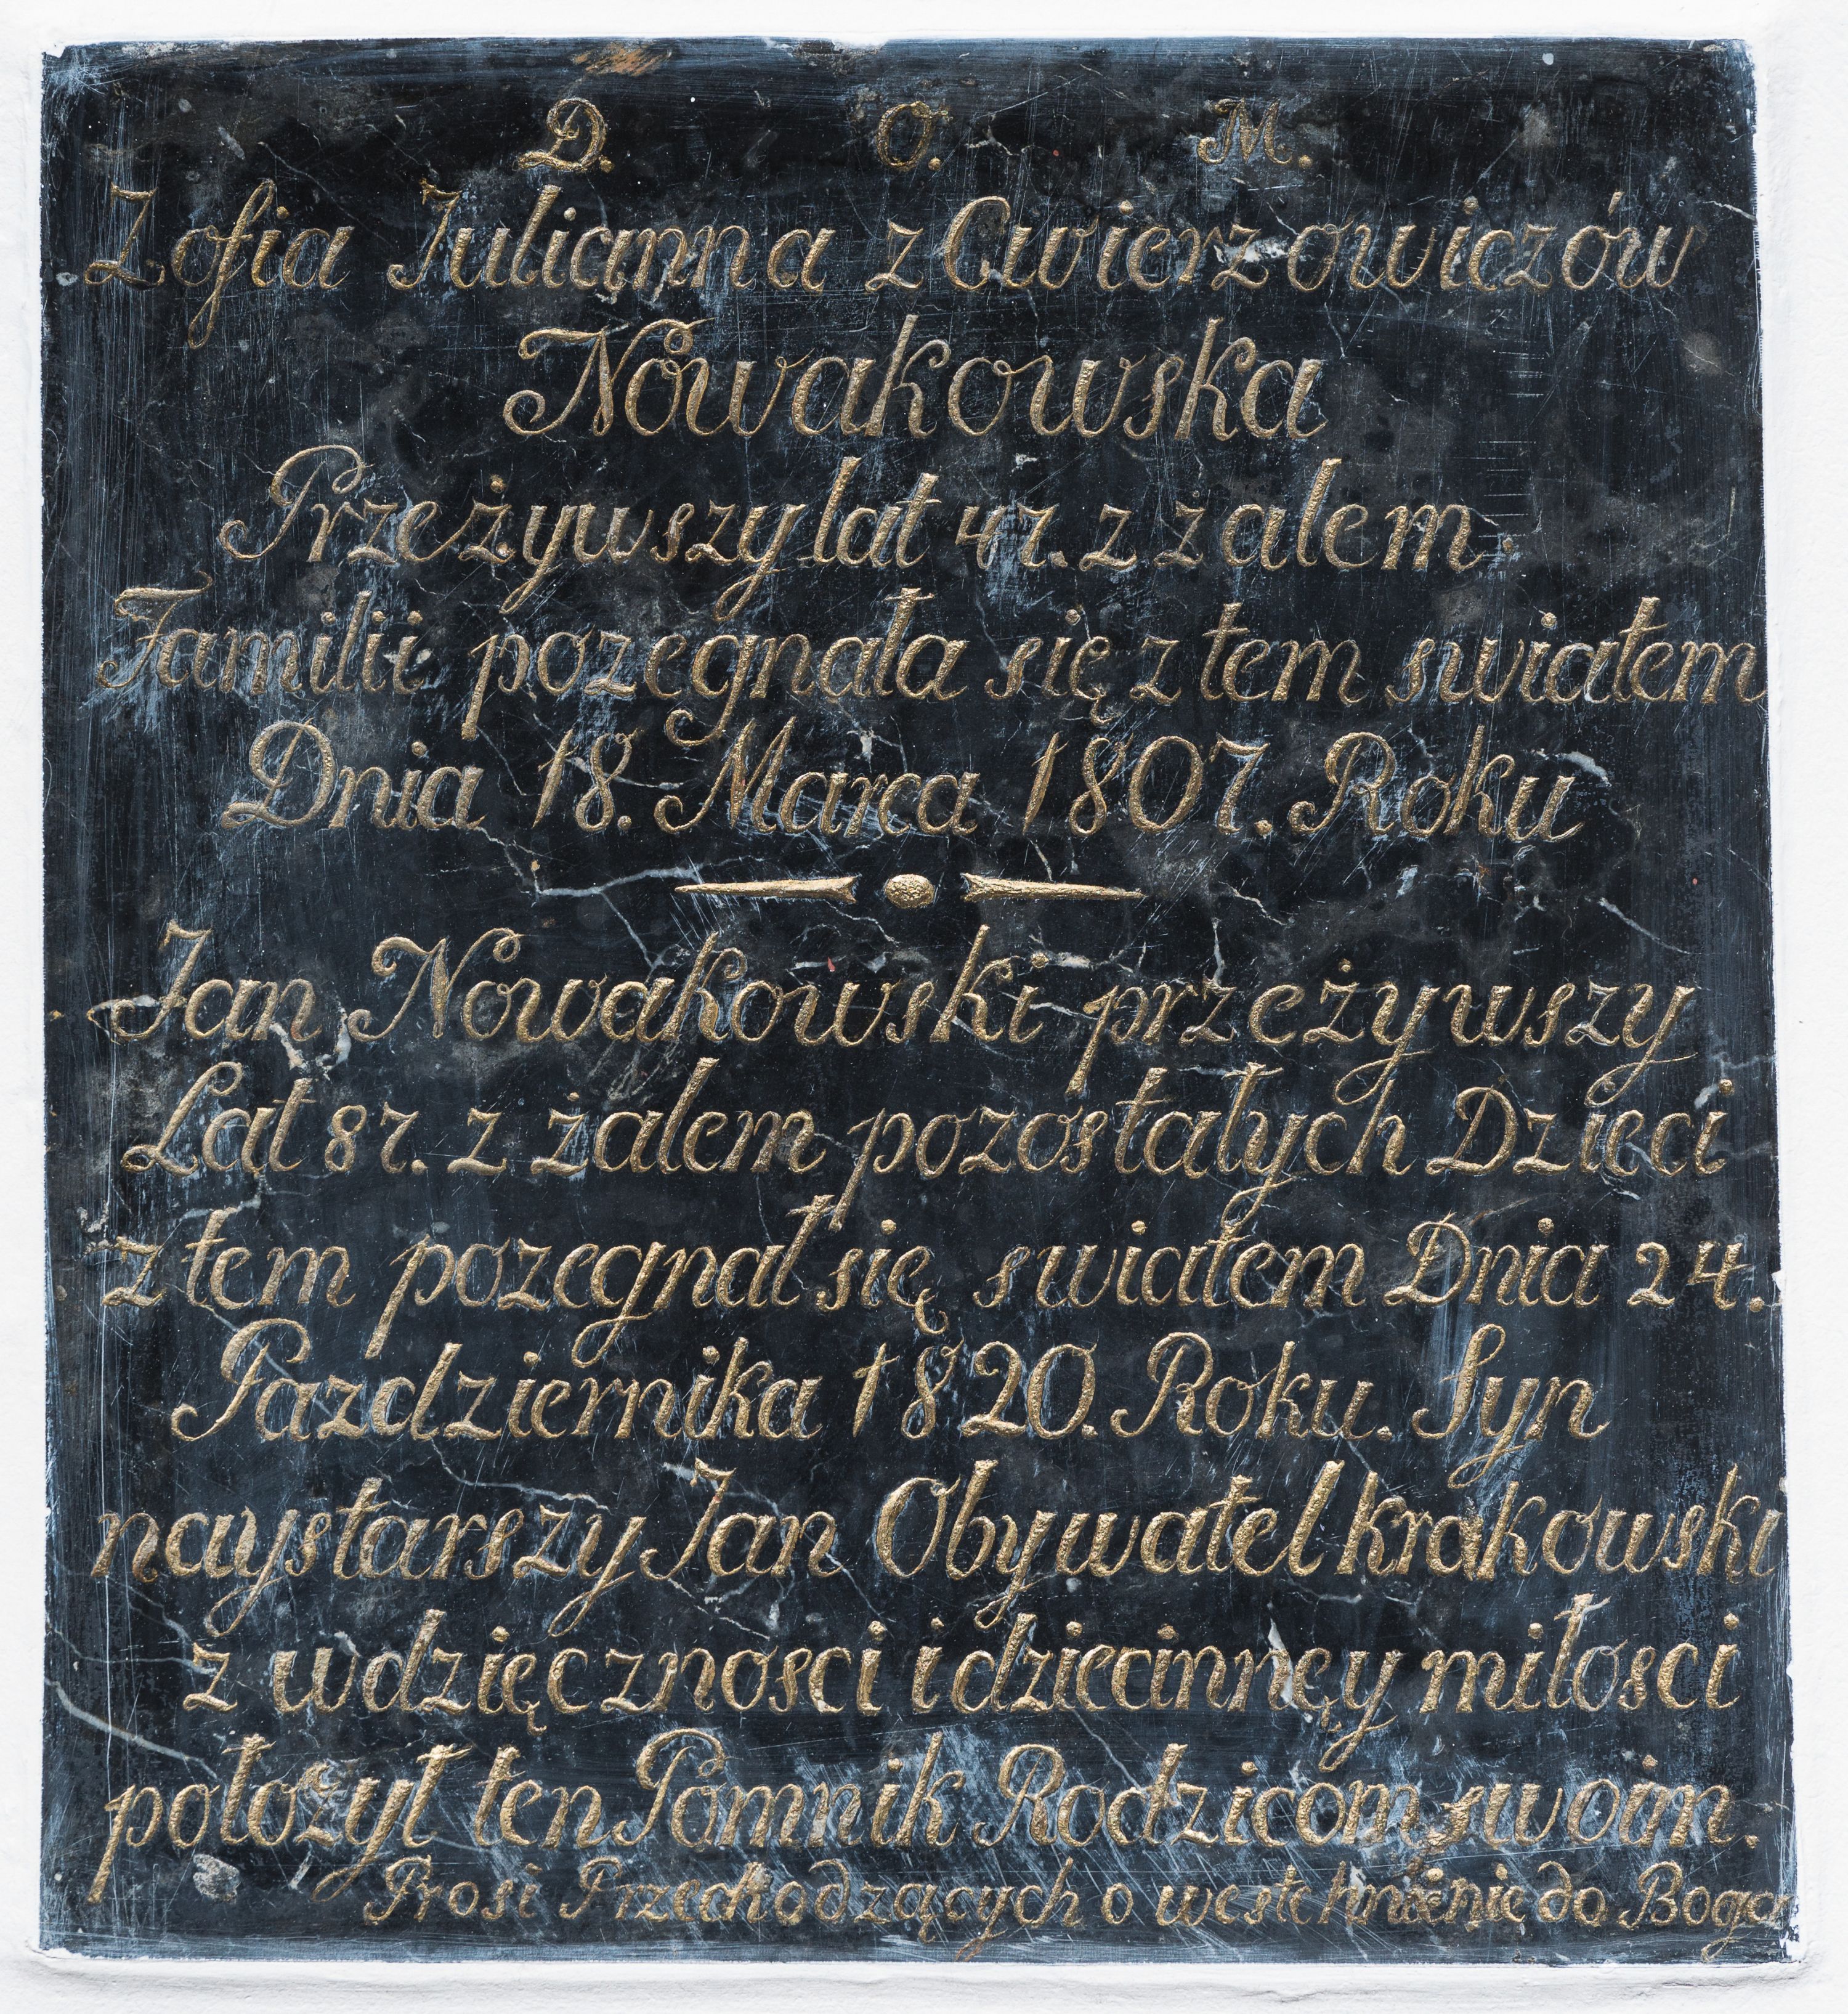 D. O. M.
Zofia Julianna z Cwierzowiczów
Nowakowska
Przeżywszy lat 47. z żalem.
Familii pozegnała się z tem swiatem
Dnia 18. Marca 1807. Roku
Jan Nowakowski przeżywszy
Lat 87. z żalem pozostałych Dzieci
z tem pozegnał się swiatem Dnia 24.
Pazdziernika 1820. Roku. Syn
naystarszy Jan Obywatel krakowski
z wdzięcznosci i dziecinnęy miłosci
położył ten Pomnik Rodzicom swoim.
Prosi Przechodzących o westchnienie do Boga